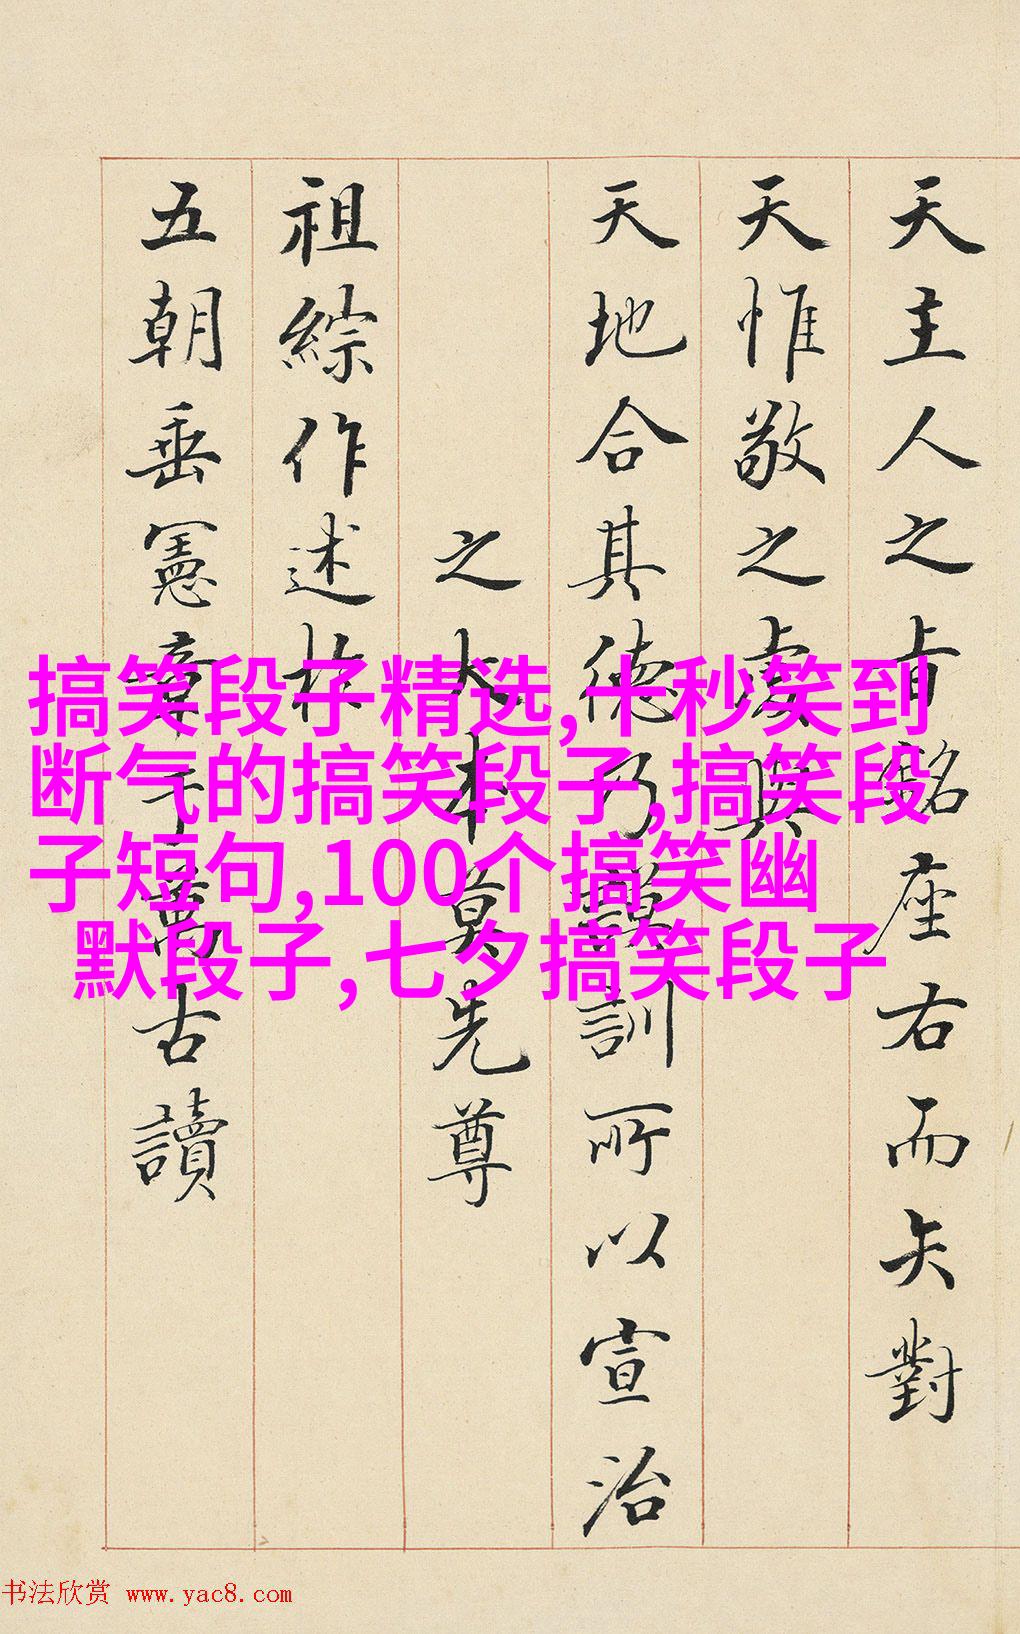 天主人之肯銘座右而矢對
天惟敬之虔與
天地合其德乃謨訓所以宣治
之大本莫先尊
祖綜作述於
五朝垂憲章千萬古讀
搞笑段子精选,十秒笑到
断气的搞笑段子,搞笑段
子短句,100个搞笑幽
默段子,七夕搞笑段子
书法欣赏 www.yac8.com